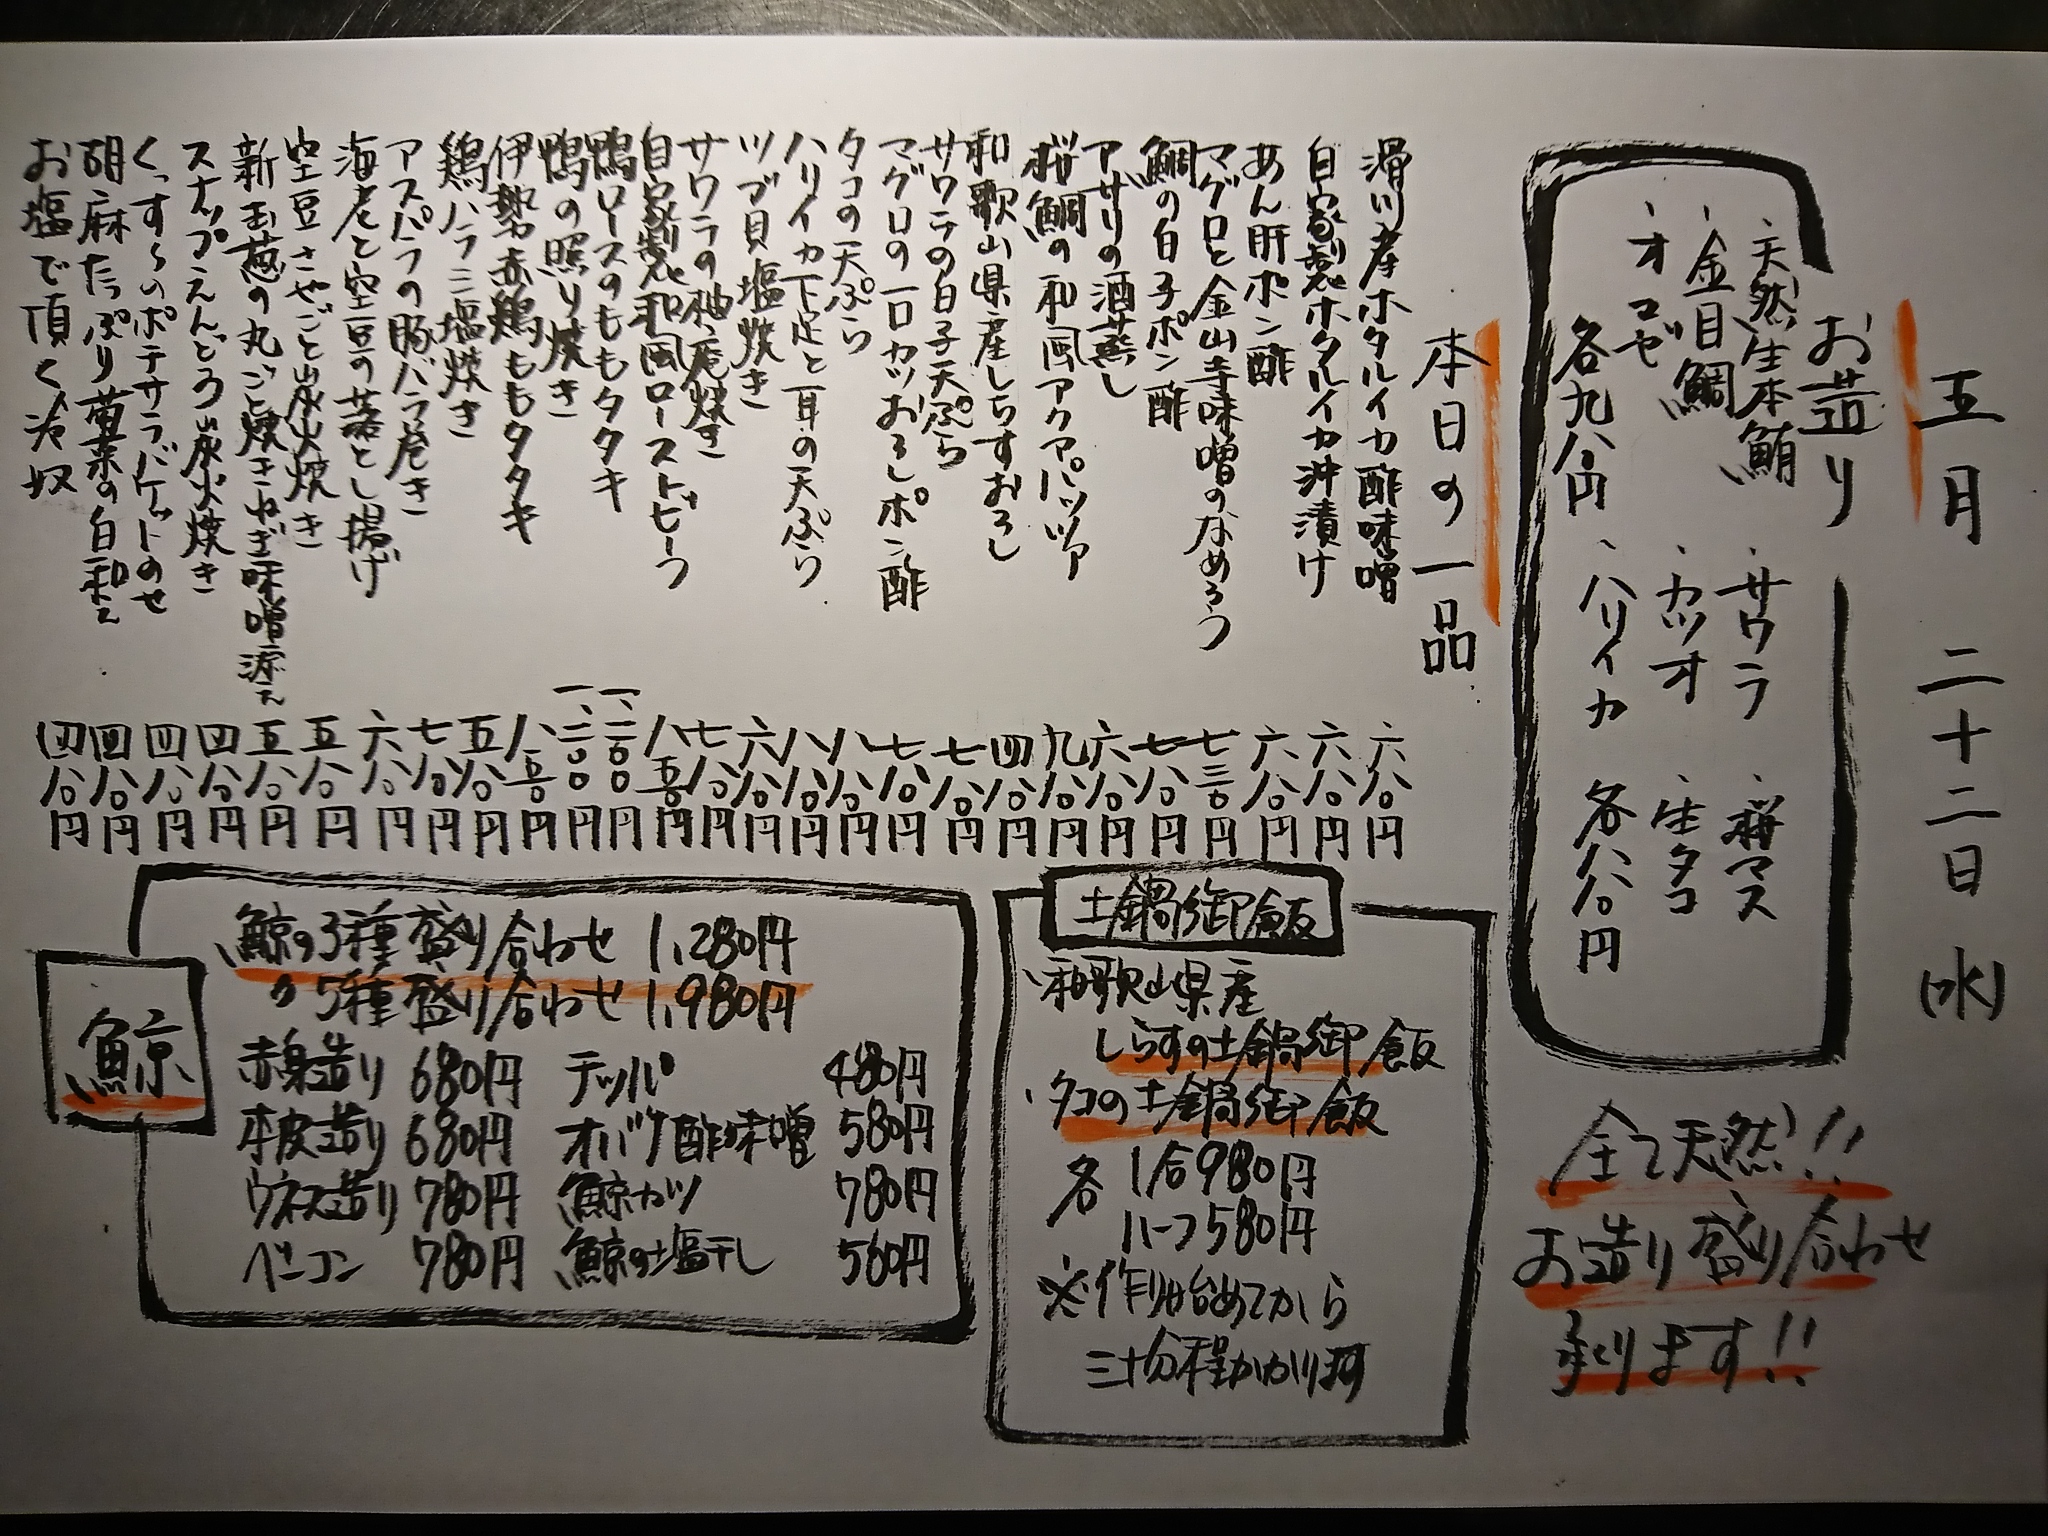 五月 二十二日 (水)
お造り
、天然生本鮪 、サワラ 、桜マス
、金目鯛 、カツオ 、生タコ
、オコゼ 各九八〇円 、ハリイカ 各八八〇円
全て天然!!
お造り盛り合わせ
承ります!!
本日の一品
滑川産ホタルイカ酢味噌 六八〇円
自家製ホタルイカ沖漬け 六八〇円
あん肝ポン酢 六八〇円
マグロと金山寺味噌のなめろう 七三〇円
鯛の白子ポン酢 七八〇円
アサリの酒蒸し 六八〇円
桜鯛の和風アクアパッツァ 九八〇円
和歌山県産しらすおろし 四八〇円
サワラの白子天ぷら 七八〇円
マグロの一口カツおろしポン酢 七八〇円
タコの天ぷら 八八〇円
ハリイカ下足と耳の天ぷら 八八〇円
ツブ貝塩焼き 六八〇円
サワラの柚庵焼き 七八〇円
自家製和風ローストビーフ 八五〇円
鴨ロースのももタタキ 一、二〇〇円
鴨の照り焼き 一、二〇〇円
伊勢赤鶏ももタタキ 八五〇円
鶏ハラミ塩焼き 五八〇円
アスパラの豚バラ巻き 七八〇円
海老と空豆の落とし揚げ 六八〇円
空豆さやごと炭火焼き 五八〇円
新玉葱の丸ごと焼きねぎ味噌添え 五八〇円
スナップえんどう炭火焼き 四八〇円
くっす〜のポテサラバケットのせ 四八〇円
胡麻たっぷり菊菜の白和え 四八〇円
お塩で頂く冷奴 四八〇円
土鍋御飯
、和歌山県産
しらすの土鍋御飯
、タコの土鍋御飯
各 1合980円
ハーフ580円
※作り始めてから
三十分程かかります
鯨
鯨の3種盛り合わせ 1,280円
〃5種盛り合わせ 1,980円
赤身造り 680円 テッパ 480円
本皮造り 680円 オバケ酢味噌 580円
ウネス造り 780円 鯨カツ 780円
ベーコン 780円 鯨の塩干し 560円